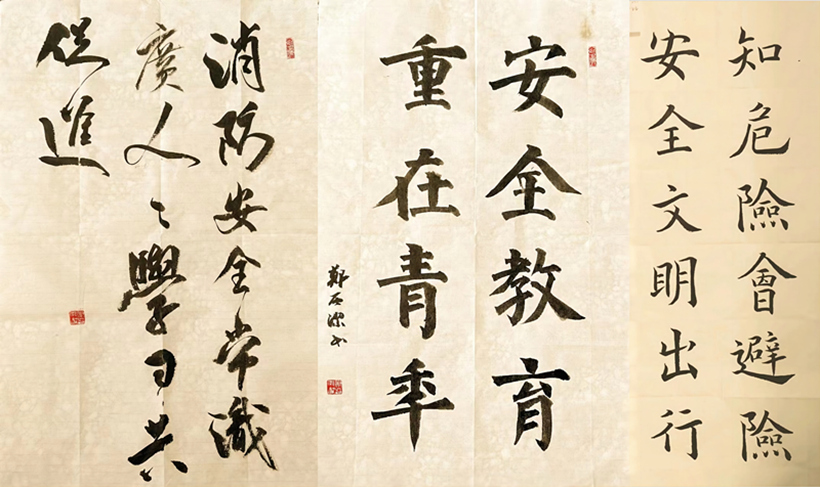 知危險會避險
安全文明出行
安全教育
重在青年
鄭
消防安全常識
廣人〻學习共
促進